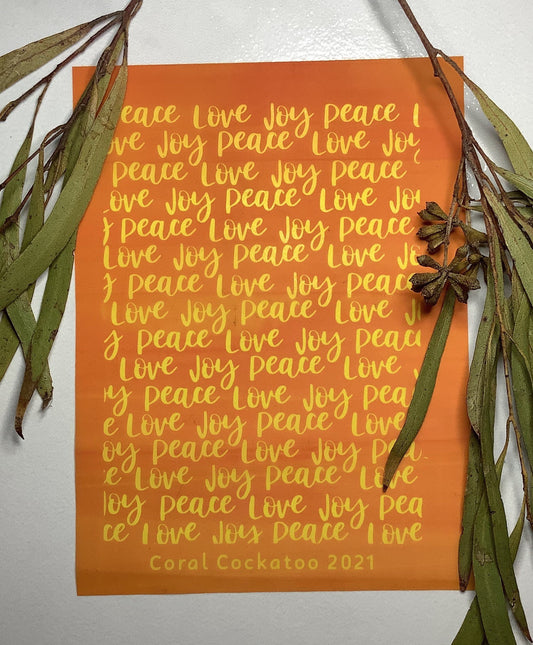 Peace Love Joy Peace
Love Joy Peace Love Joy
Peace Love Joy Peace
Love Joy Peace Love Joy
Peace Love Joy Peace
Love Joy Peace Love
Joy Peace Love Joy Peace
Love Joy Peace Love Joy
Peace Love Joy Peace
Love Joy Peace Love
Joy Peace Love Joy Peace
Love Joy Peace Love
Joy Peace Love Joy Pea
Love Joy Peace Love
Joy Peace Love Joy Pea
ce Love Joy Peace Love
Coral Cockatoo 2021